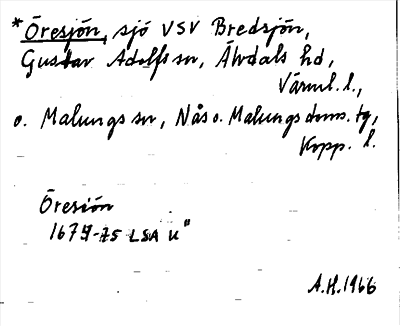 *Öresjön, sjö VSV Bredsjön,
Gustav Adolfs sn, Älvdals hd,
Värml. l.,
o. Malungs sn, Nås o. Malungs doms. tg,
Kopp. l.
Öresiön
1674-75 LSA U"
A.H. 1966